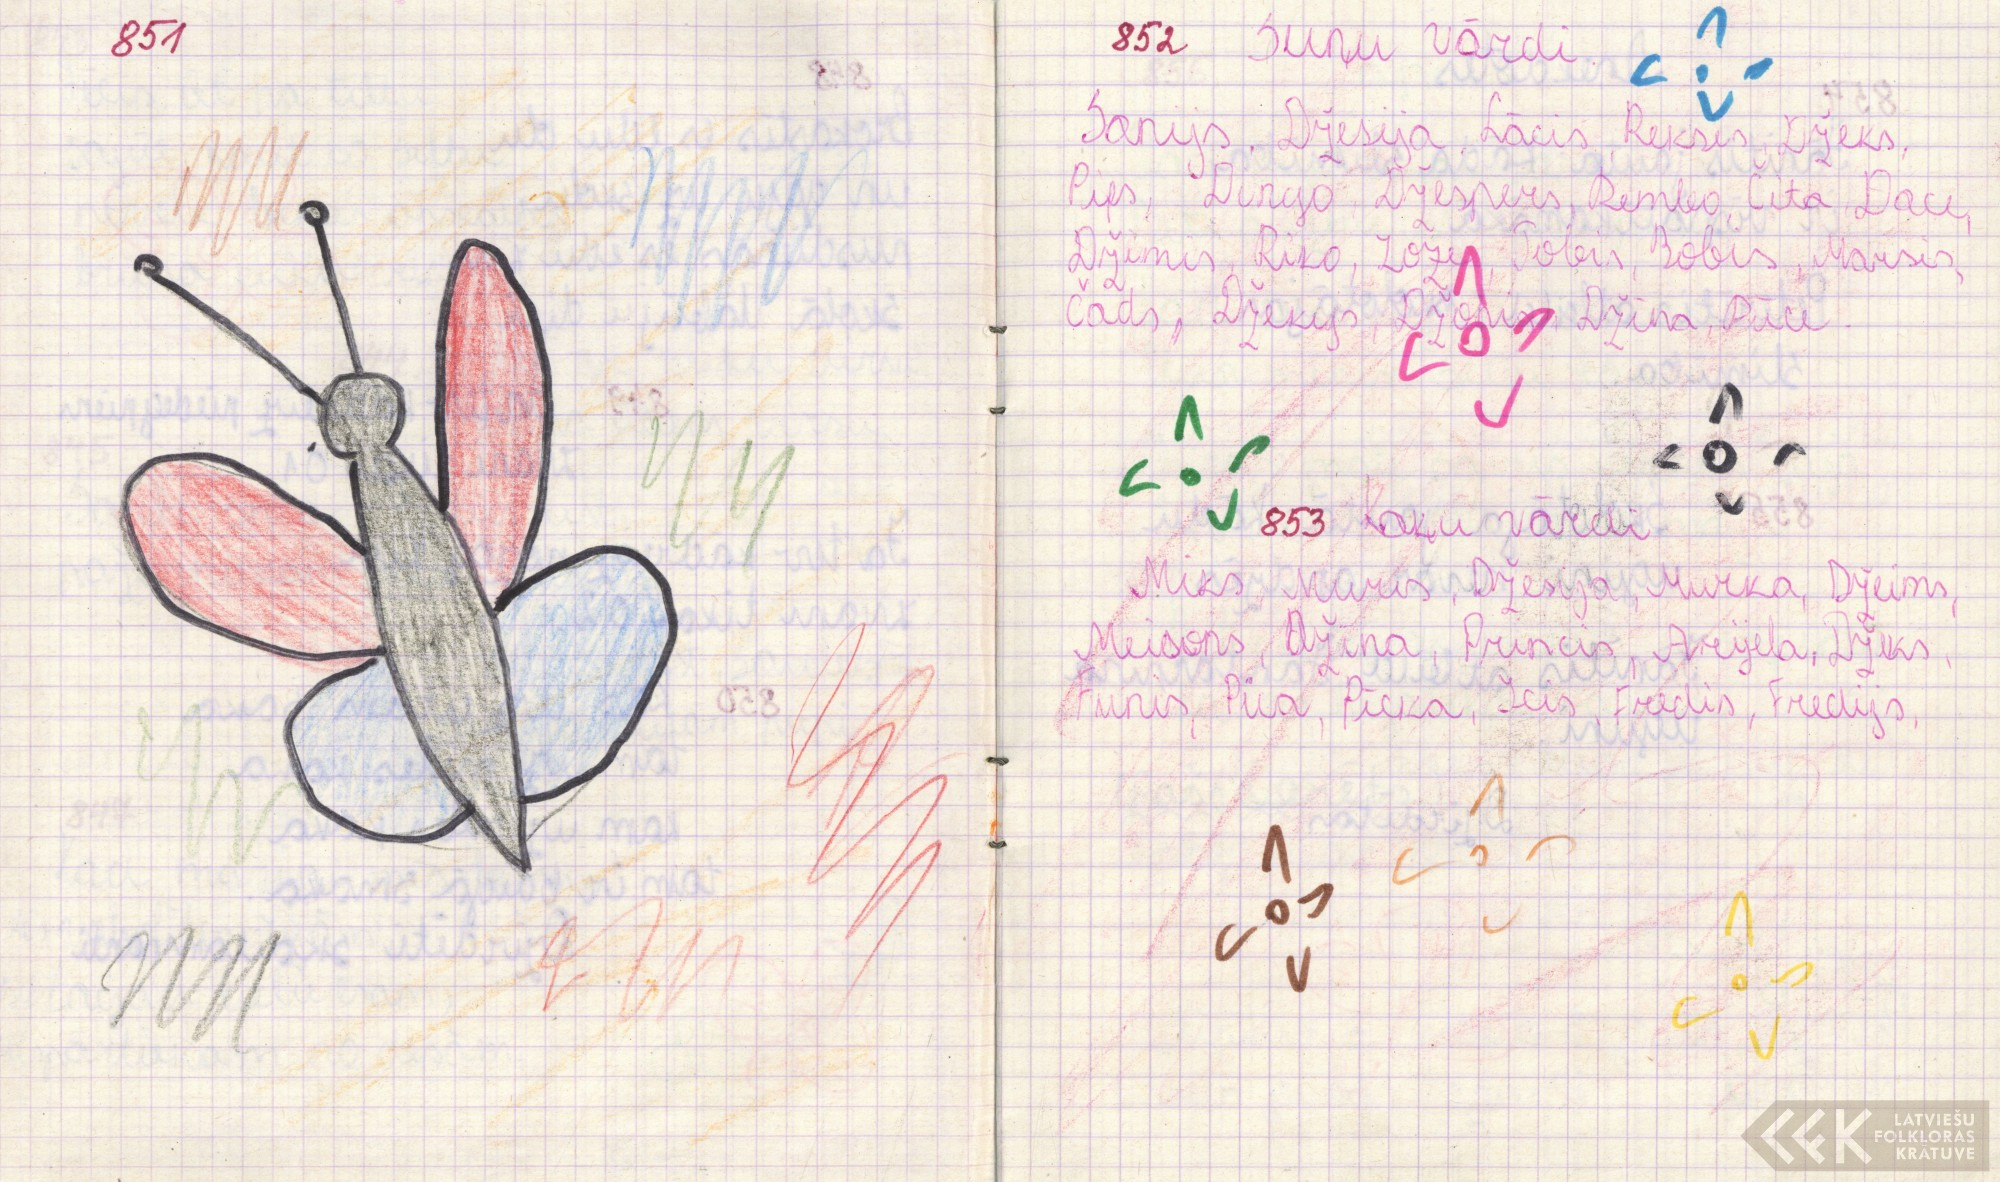 851
852 Suņu vārdi
Sanijs, Džesija, Lācis, Reksis, Džeks,
Pips, Dingo, Džespers, Rembo, Čita, Dace,
Džimis, Riko, Tobis, Bobis, Marsis,
Čads, Džekijs, Džonis, Džīna, Pūce.
853 Kaķu vārdi
Miks, Muris, Džesija, Murka, Džeims,
Meisons, Džīna, Princis, Arijela, Džeks,
Funis, Pūa, Picka, Icis, Fredis, Fredijs,
LATVIEŠU
FOLKLORAS
KRĀTUVE